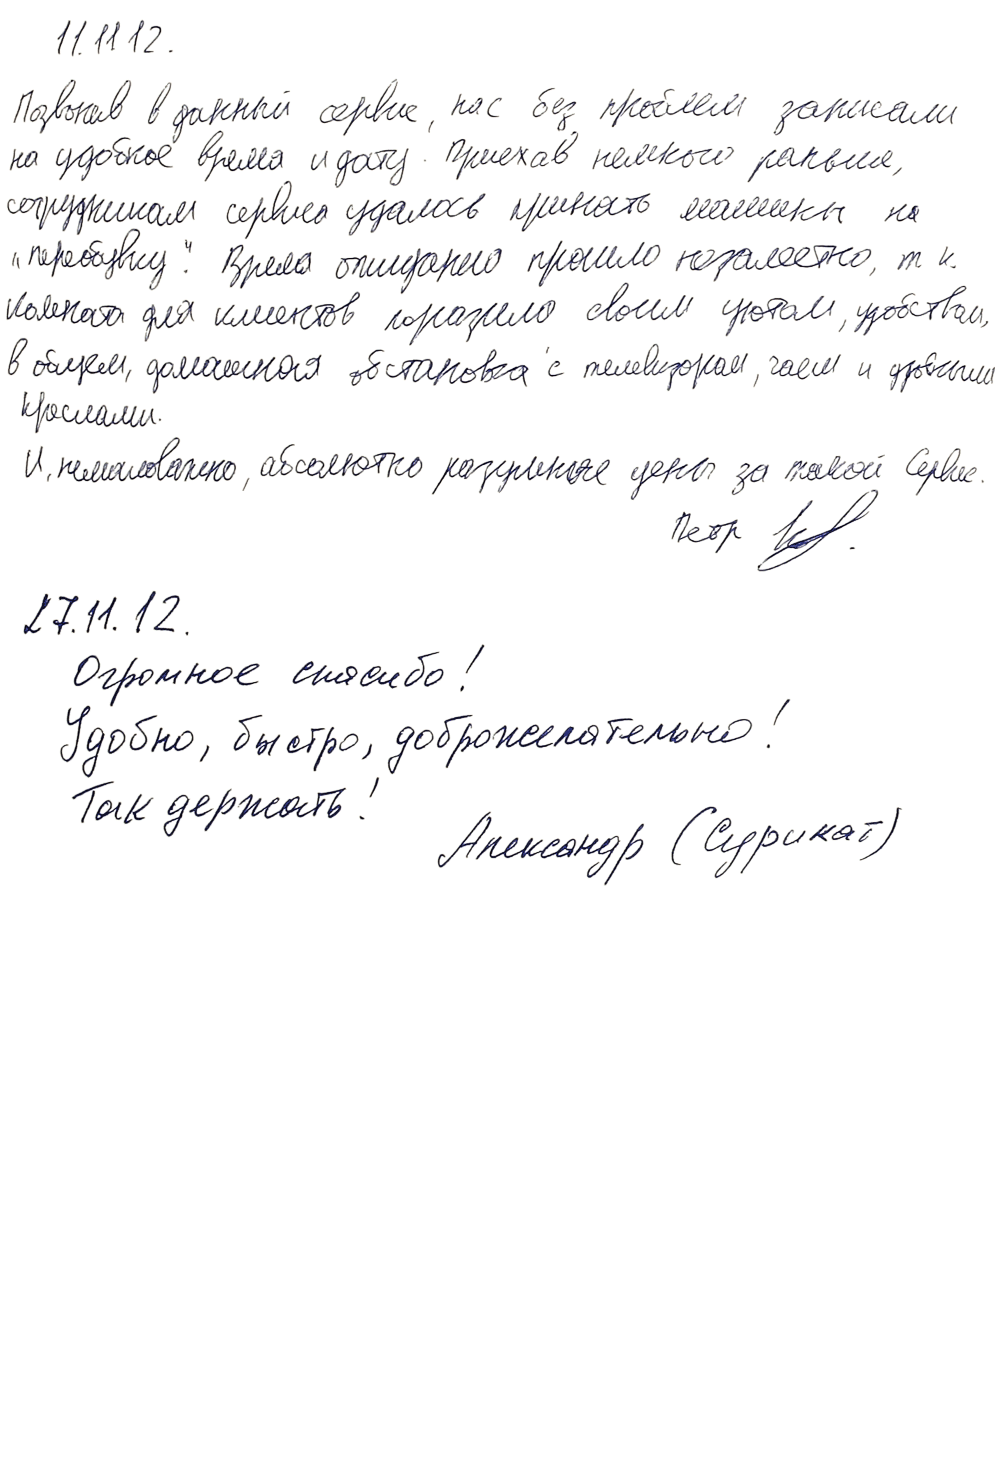 11.11 12.
Позвонив в данный сервис, нас без проблем записали
на удобное время и дату. Приехав немного раньше,
сотрудникам сервиса удалось принять машины на
"переобувку". Время ожидания прошло незаметно, т к.
комната для клиентов поразила своим уютом, удобством,
в общем, домашняя обстановка с телевизором, чаем и удобными
креслами.
И, немаловажно, абсолютно разумные цены за такой Сервис.
Петр
27.11.12.
Огромное спасибо!
Удобно, быстро, доброжелательно!
Так держать!
Александр (Сурикат)